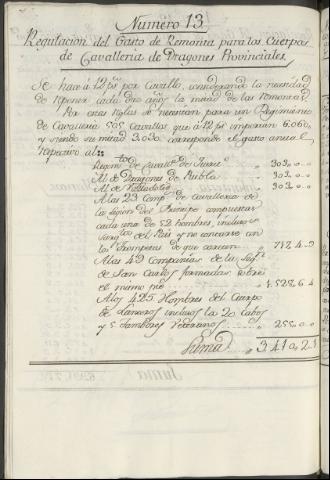 Numero 13
Regulacion del Gasto de Remonta para los Cuerpos
de Cavalleria de Dragones Provinciales
Se hace á 12 ps. por Cavallo, considerando la necesidad
de reponer cada dos años la mitad de las Remontas.
Por estas reglas se necesitan para un Regimiento
de Cavalleria 505 Cavallos que á 12 ps. importan 6.060,
y siendo su mitad 3.030 corresponde el gasto anual
respectivo al:
Regim.to de Cavall.a de 3030,, 0,, 0
Al de Dragones de Puebla 3030,, 0,, 0
Al de Valladolid 3030,, 0,, 0
A las 23 Comp.s de Cavalleria de
la Legion del Principe compuestas
cada una de 52 hombres, inclusos
Sarg.tos del Pais y no contando con
los Trompetas de que carecen
A las 49 Compañias de la
de San Carlos formadas sobre
el mismo pie
A los 425 Hombres del Cuerpo
de Lanceros inclusos los 20 Cabos
y 5 Tambores Veteranos 2550,, 0
Suma